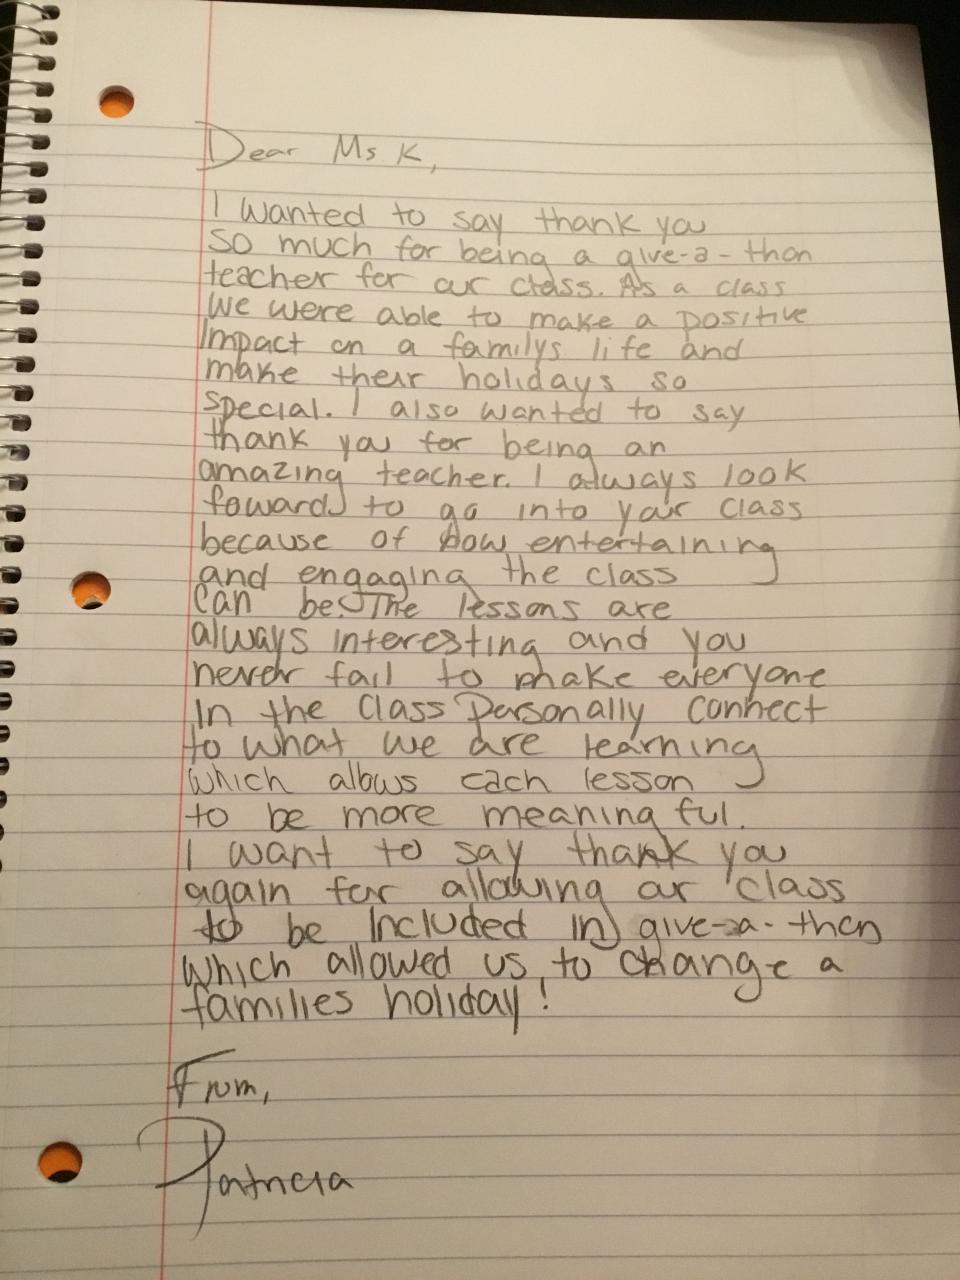 Dear Ms K,
I wanted to say thank you
so much for being a give-a-thon
teacher for our class. As a class
we were able to make a positive
impact on a familys life and
make their holidays so
special. I also wanted to say
thank you for being an
amazing teacher. I always look
foward to go into your class
because of how entertaining
and engaging the class
can be. The lessons are
always interesting and you
never fail to make everyone
in the class personally connect
to what we are learning
which allows each lesson
to be more meaningful.
I want to say thank you
again for allowing our class
to be included in give-a-thon
which allowed us to change a
families holiday!
From,
Patricia